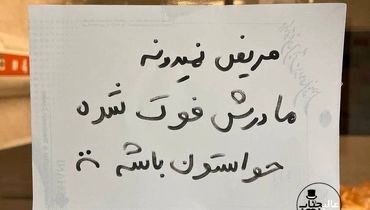 مریض نمیدونه
مادرش فوت شده
حواستون باشه